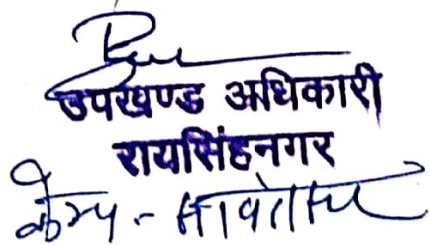 उपखण्ड अधिकारी
रायसिंहनगर
कैम्प -